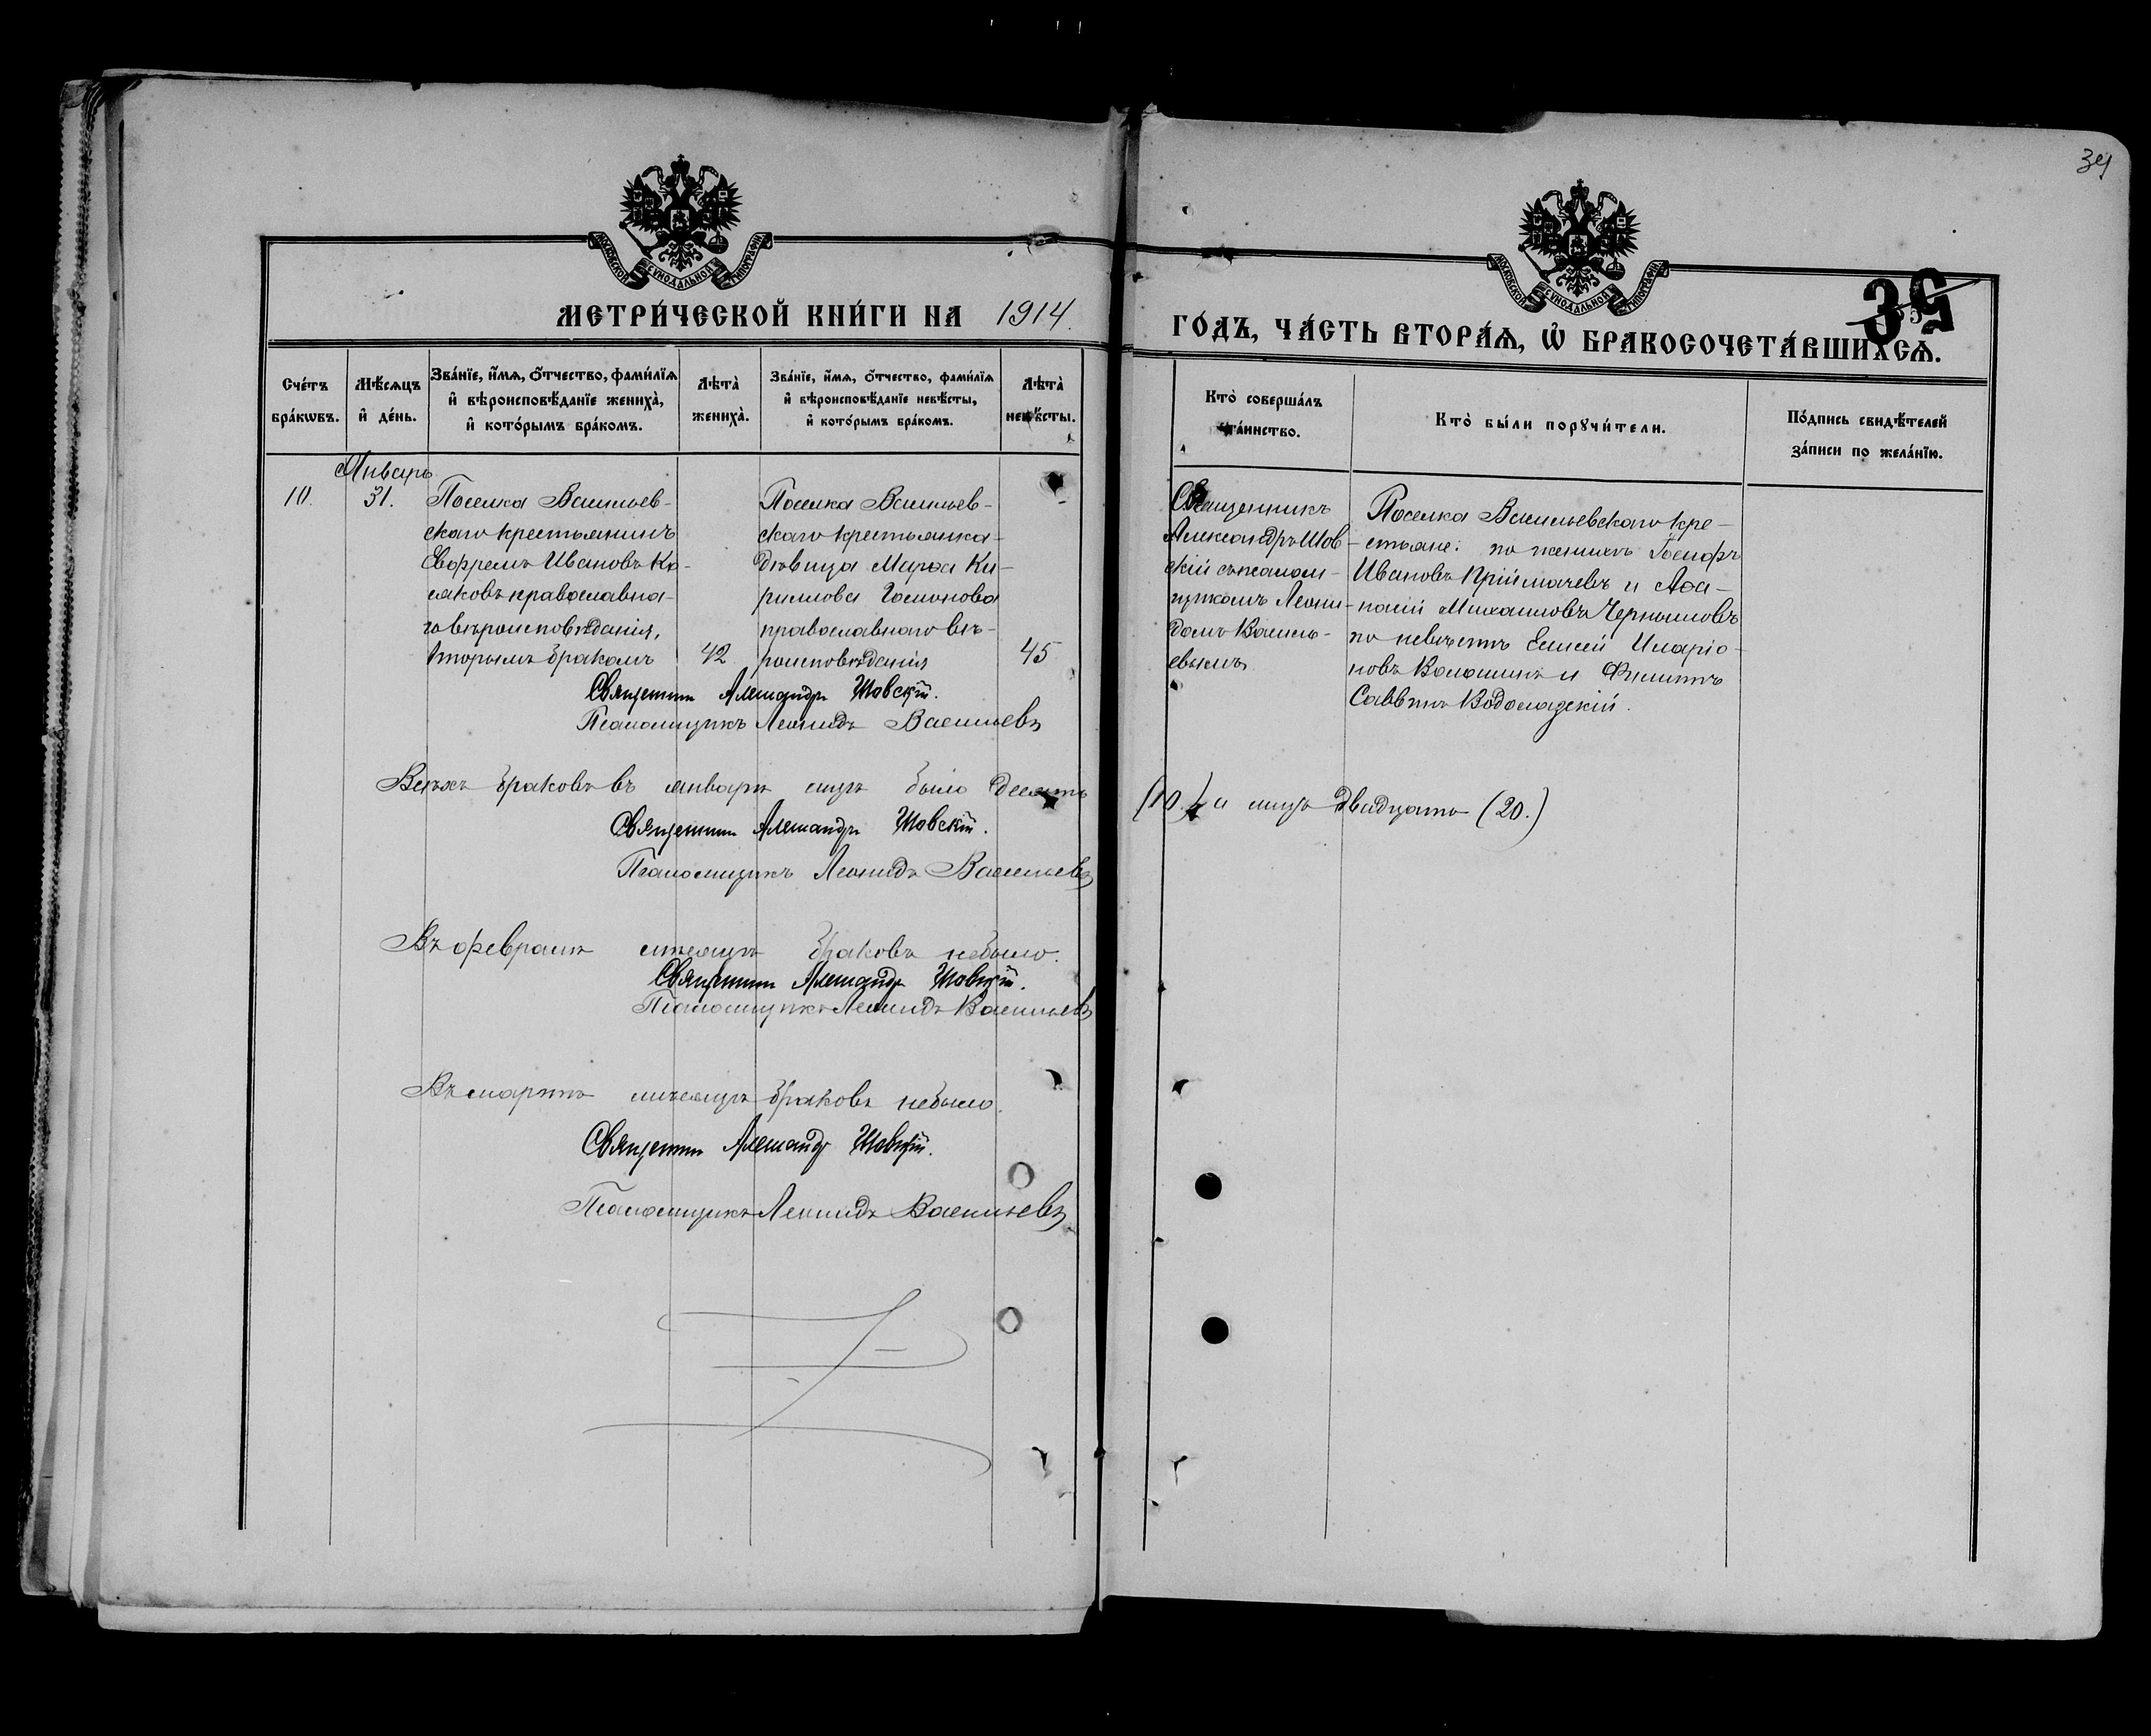 34
35
МОСКОВСКОЙ СѴНОДАЛЬНОЙ ТИПОГРАФІИ
МОСКОВСКОЙ СѴНОДАЛЬНОЙ ТИПОГРАФІИ
МЕТРИ́ЧЕСКОЙ КНИ́ГИ НА 1914.
ГО́ДЪ, ЧА́СТЬ ВТОРА́Ѧ, Ѽ БРАКОСОЧЕТА́ВШИХСѦ.
Сче́тъ бра́кωвъ.
Мѣ́сяцъ и҆ де́нь.
Зва́нїе, и҆́мѧ, ѻ҆́тчество, фами́лїѧ
и҆ вѣроисповѣ́данїе жениха̀,
и҆ кото́рымъ бра́комъ.
Лѣта̀ жениха̀.
Зва́нїе, и҆́мѧ, ѻ҆́тчество, фами́лїѧ
и҆ вѣроисповѣ́данїе невѣ́сты,
и҆ кото́рымъ бра́комъ.
Лѣта̀ невѣ́сты.
Кто̀ соверша́лъ
та́инство.
Кто̀ бы́ли порꙋчи́тели.
По́дпись свидѣ́телей
за́писи по жела́нїю.
Январь
10.
31.
Поселка Васильев-
скаго крестьянинъ
Ефремъ Ивановъ Ко-
ляковъ православна-
го вѣроисповѣданія,
вторымъ бракомъ
42
Поселка Васильев-
скаго крестьянка-
дѣвица Марѳа Ки-
риллова
православнаго вѣ-
роисповѣданія
45
Священникъ
Александръ Шов-
скій съ псалом-
щикомъ Леони-
домъ Василь-
евымъ
Поселка Васильевскаго кре-
стьяне: по женихѣ Іосифъ
Ивановъ Пріймачевъ и Аѳа-
насій Михаиловъ Черниловъ
по невѣстѣ Елисей Иларіо-
новъ Волошинъ и Филиппъ
Саввинъ Водолазскій.
Священникъ Александръ Шовскій.
Псаломщикъ Леонидъ Васильевъ
Всѣхъ браковъ въ январѣ мцѣ было десять
(10.) а лицъ двадцать (20.)
Священникъ Александръ Шовскій.
Псаломщикъ Леонидъ Васильевъ
Въ февралѣ мѣсяцѣ браковъ небыло.
Священникъ Александръ Шовскій.
Псаломщикъ Леонидъ Васильевъ
Въ мартѣ мѣсяцѣ браковъ небыло.
Священникъ Александръ Шовскій.
Псаломщикъ Леонидъ Васильевъ